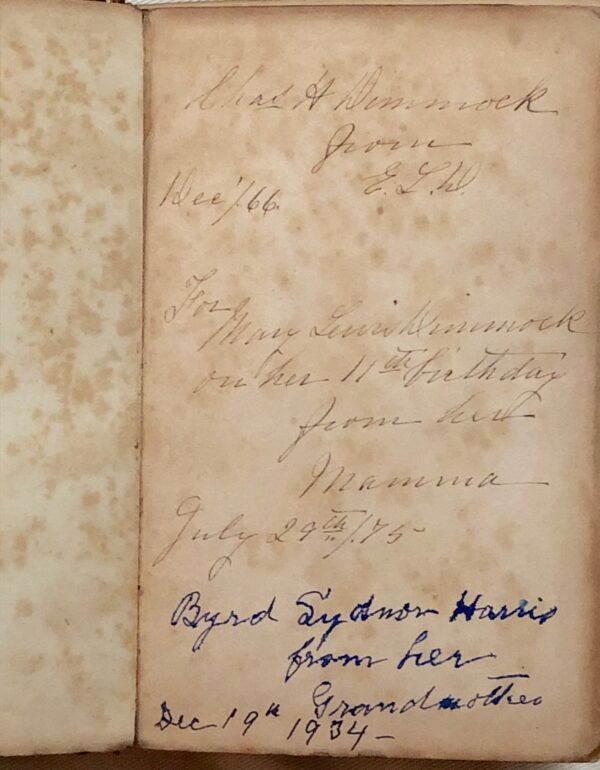 Chas H Dimmock
from
E. L. D.
Dec '/66
For
Mary Lewis Dimmock
on her 11th birthday
from her
Mamma
July 29th /75
Byrd Sydnor Harris
from her
Grandmother
Dec 19th
1934 –